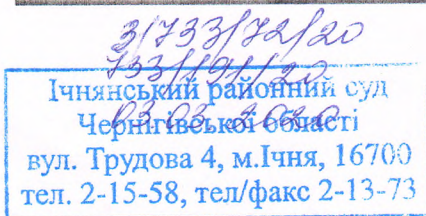 3/733/72/20
733/191/20
03 03 2020
Ічнянський районний суд
Чернігівської області
вул. Трудова 4, м.Ічня, 16700
тел. 2-15-58, тел/факс 2-13-73